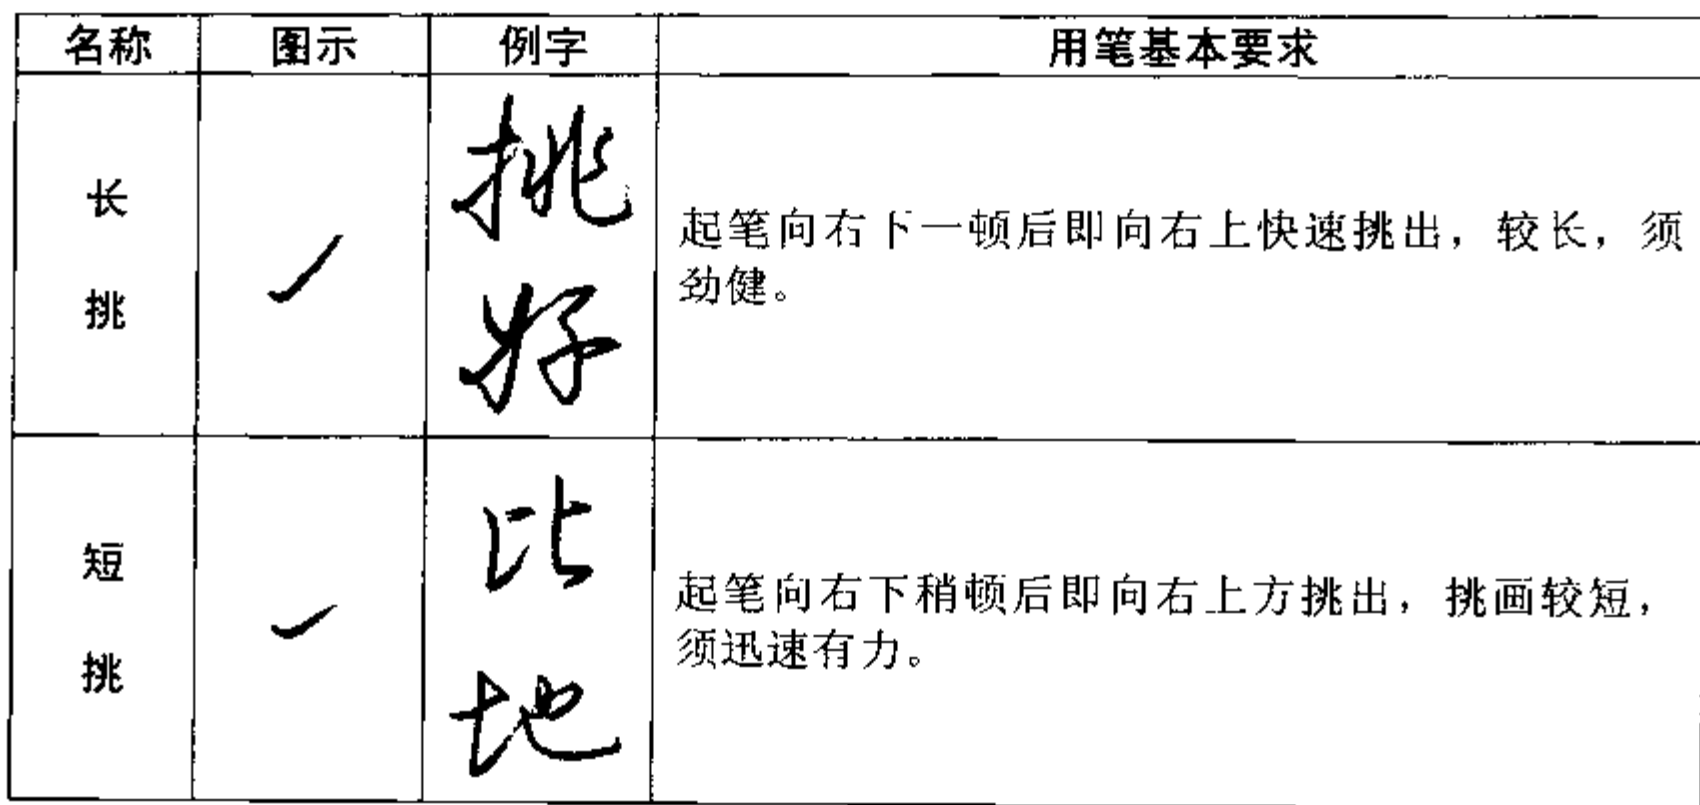 名称 图示 例字 用笔基本要求
长挑 挑好 起笔向右下一顿后即向右上快速挑出，较长，须
劲健。
短挑 比地 起笔向右下稍顿后即向右上方挑出，挑画较短，
须迅速有力。